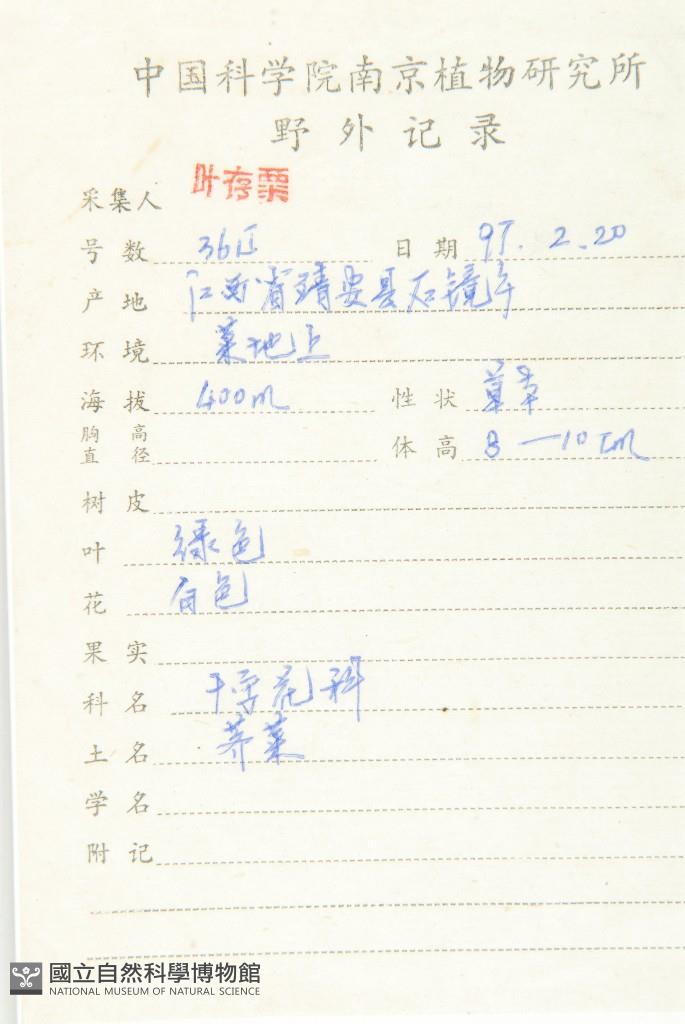 中国科学院南京植物研究所
野外记录
采集人 叶存粟
号数 日期 97.2.20
产地 江西省靖安县石镜
环境 菜地上
海拔 400m 性状 草本
胸高直径 体高 8—10cm
树皮
叶 绿色
花 白色
果实
科名 十字花科
土名 荠菜
学名
附记
國立自然科學博物館
NATIONAL MUSEUM OF NATURAL SCIENCE